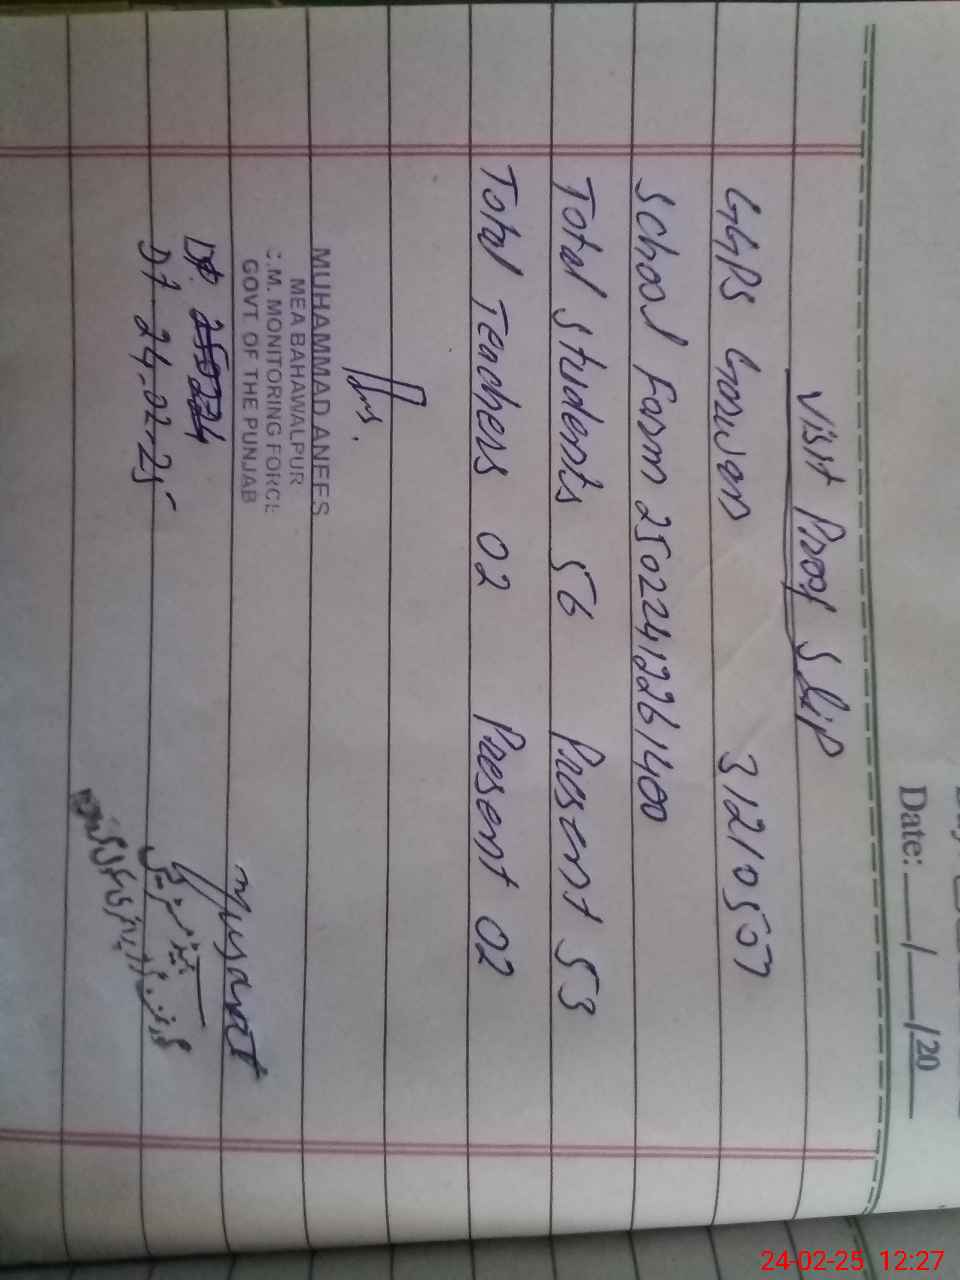 Date: ___/___/20___
Visit Proof Slip
GGPS 31210507
School Form 25022412261400
Total Students 56 Present 53
Total Teachers 02 Present 02
MUHAMMAD ANEES
MEA BAHAWALPUR
C.M. MONITORING FORCE
GOVT. OF THE PUNJAB
Dt 24-02-25
Musarat
24-02-25 12:27